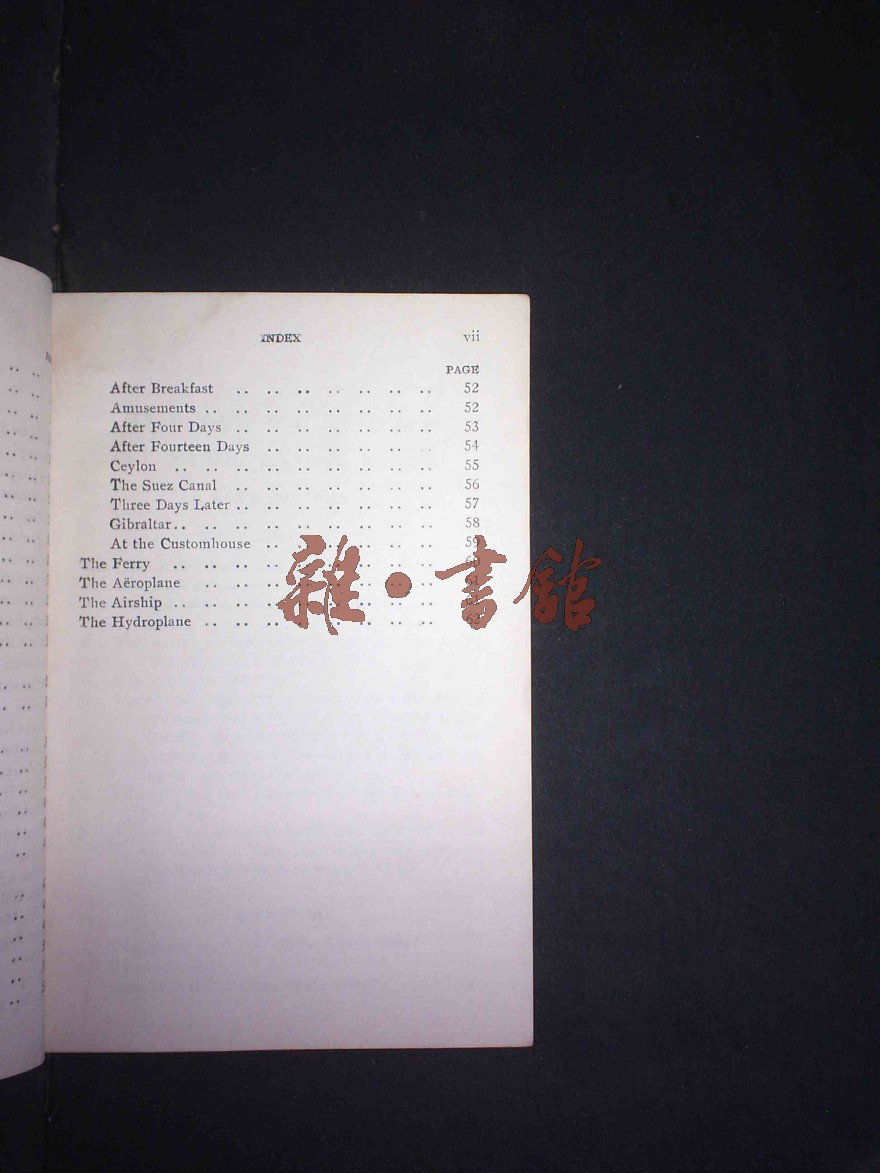 INDEX vii
PAGE
After Breakfast .. .. .. .. .. .. .. 52
Amusements .. .. .. .. .. .. .. .. 52
After Four Days .. .. .. .. .. .. .. 53
After Fourteen Days .. .. .. .. .. .. 54
Ceylon .. .. .. .. .. .. .. .. .. 55
The Suez Canal .. .. .. .. .. .. .. 56
Three Days Later .. .. .. .. .. .. .. 57
Gibraltar .. .. .. .. .. .. .. .. .. 58
At the Customhouse .. .. .. .. .. .. 59
The Ferry .. .. .. .. .. .. .. .. .. 60
The Aëroplane .. .. .. .. .. .. .. .. 61
The Airship .. .. .. .. .. .. .. .. ..
The Hydroplane .. .. .. .. .. .. .. ..
雜·書館